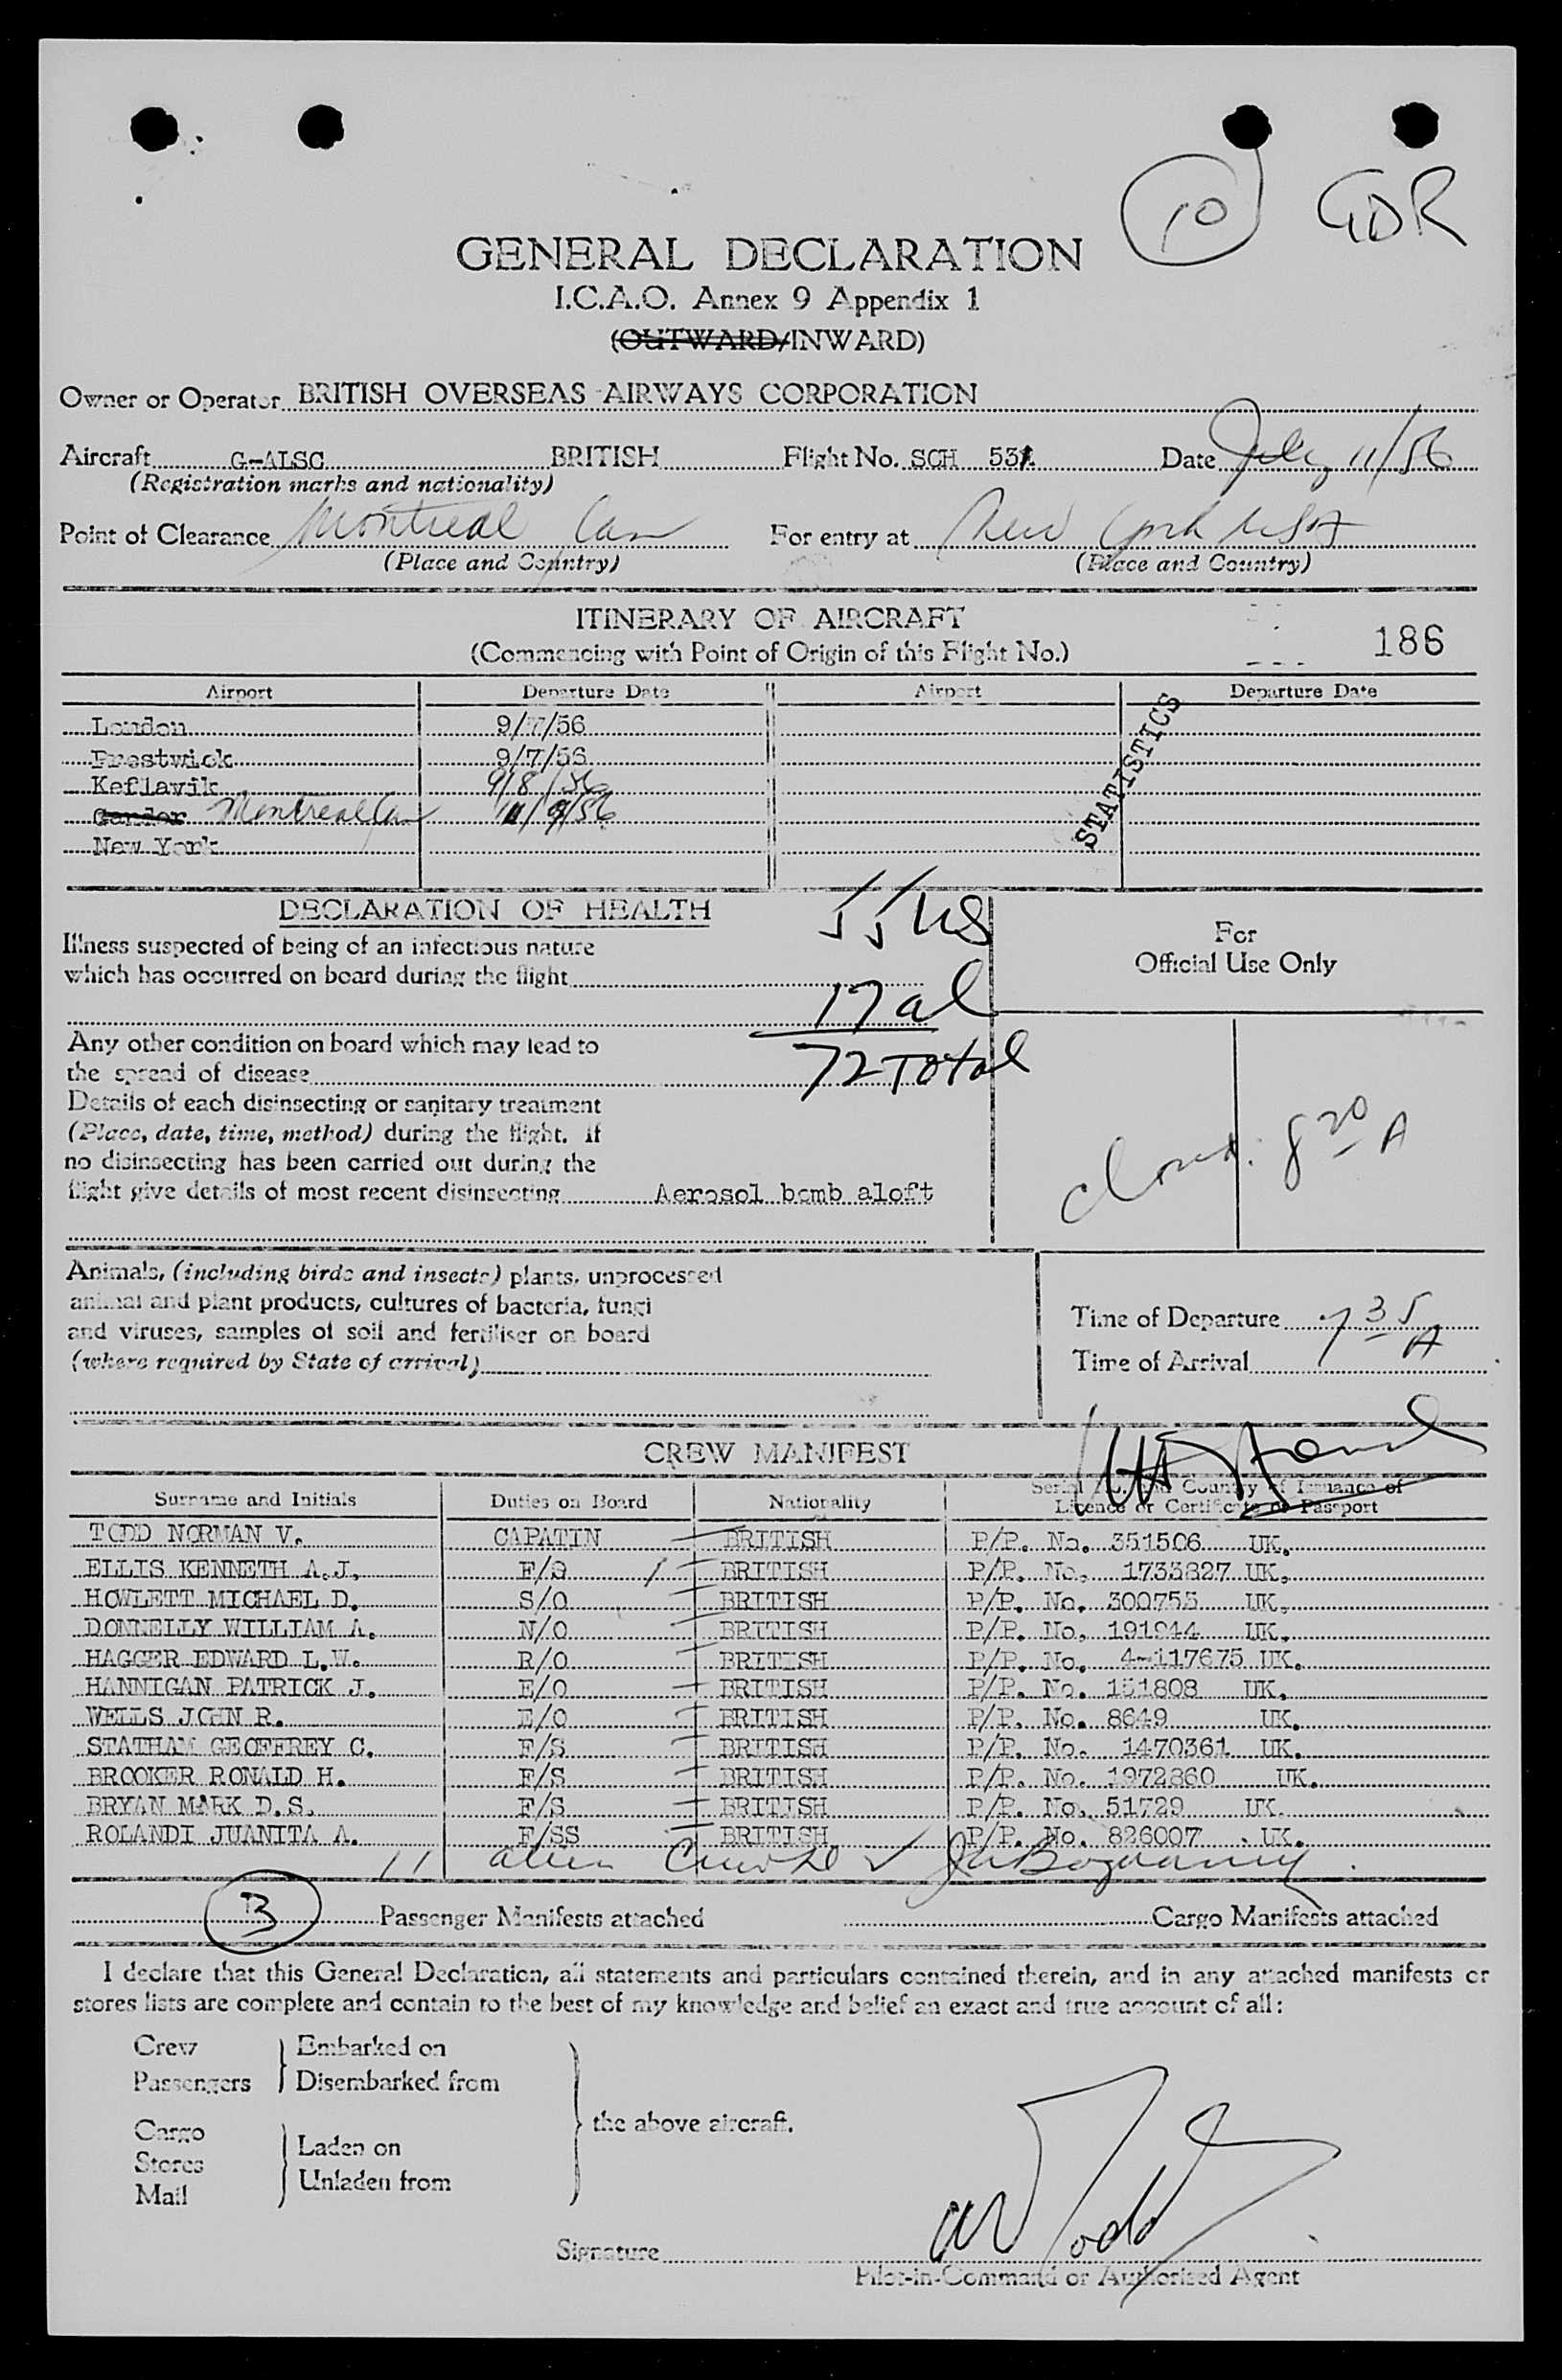 10 GDR
GENERAL DECLARATION
I.C.A.O. Annex 9 Appendix 1
(OUTWARD/INWARD)
Owner or Operator BRITISH OVERSEAS AIRWAYS CORPORATION
Aircraft G-ALSC BRITISH Flight No. SCH 531 Date July 11/56
(Registration marks and nationality)
Point of Clearance Montreal Can For entry at New York USA
(Place and Country) (Place and Country)
ITINERARY OF AIRCRAFT
(Commencing with Point of Origin of this Flight No.)
186
Airport Departure Date Airport Departure Date
London 9/7/56
Prestwick 9/7/56
Keflavik 9/8/56
Gander Montreal Can 11/56
New York
STATISTICS
DECLARATION OF HEALTH
55 US
For
Official Use Only
Illness suspected of being of an infectious nature
which has occurred on board during the flight
17 al
72 Total
Any other condition on board which may lead to
the spread of disease
Details of each disinsecting or sanitary treatment
(Place, date, time, method) during the flight. If
no disinsecting has been carried out during the
flight give details of most recent disinsecting Aerosol bomb aloft
8 20 A
Animals, (including birds and insects) plants, unprocessed
animal and plant products, cultures of bacteria, fungi
and viruses, samples of soil and fertiliser on board
(where required by State of arrival)
Time of Departure 7 35 A
Time of Arrival
CREW MANIFEST
Surname and Initials Duties on Board Nationality Serial No. and Country of Issuance of
Licence or Certificate or Passport
TODD NORMAN V. CAPATIN BRITISH P/P. No. 351506 UK.
ELLIS KENNETH A.J. F/O BRITISH P/P. No. 1733827 UK.
HOWLETT MICHAEL D. S/O BRITISH P/P. No. 300755 UK.
DONNELLY WILLIAM A. N/O BRITISH P/P. No. 191944 UK.
HAGGER EDWARD L.W. R/O BRITISH P/P. No. 4-117675 UK.
HANNIGAN PATRICK J. E/O BRITISH P/P. No. 151808 UK.
WELLS JOHN R. E/O BRITISH P/P. No. 8649 UK.
STATHAM GEOFFREY C. F/S BRITISH P/P. No. 1470361 UK.
BROOKER RONALD H. F/S BRITISH P/P. No. 1972860 UK.
BRYAN MARK D.S. F/S BRITISH P/P. No. 51729 UK.
ROLANDI JUANITA A. F/SS BRITISH P/P. No. 826007 UK.
11 alien
3 Passenger Manifests attached Cargo Manifests attached
I declare that this General Declaration, all statements and particulars contained therein, and in any attached manifests or
stores lists are complete and contain to the best of my knowledge and belief an exact and true account of all:
Crew Embarked on
Passengers Disembarked from
the above aircraft.
Cargo
Stores Laden on
Mail Unladen from
Signature Todd
Pilot-in-Command or Authorised Agent